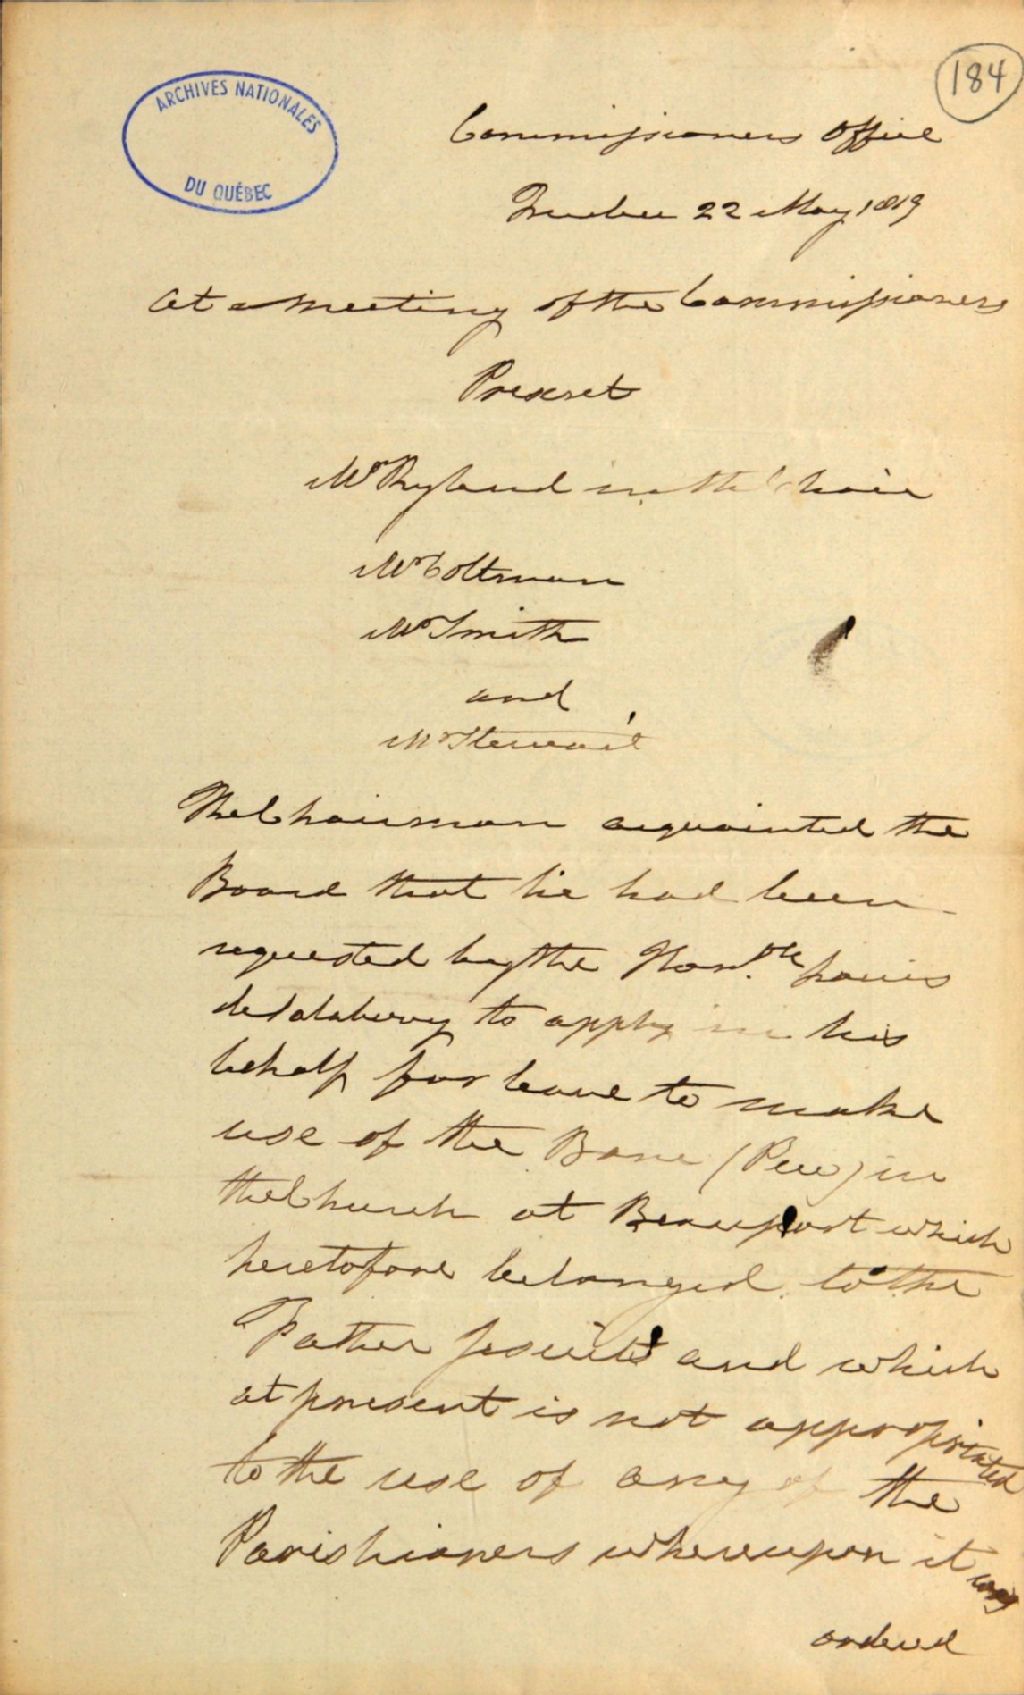 184
ARCHIVES NATIONALES
DU QUÉBEC
Commissioners Office
Quebec 22 May 1819
At a meeting of the Commissioners
Present
Mr Ryland in the Chair
Mr Coltman
Mr Smith
and
Mr Stewart
The Chairman acquainted the
Board that he had been
requested by the Honble Louis
deSalaberry to apply in his
behalf for leave to make
use of the Banc (Pew) in
the Church at Beauport which
heretofore belonged to the
Father Jesuits and which
at present is not appropriated
to the use of any of the
Parishioners whereupon it was
ordered